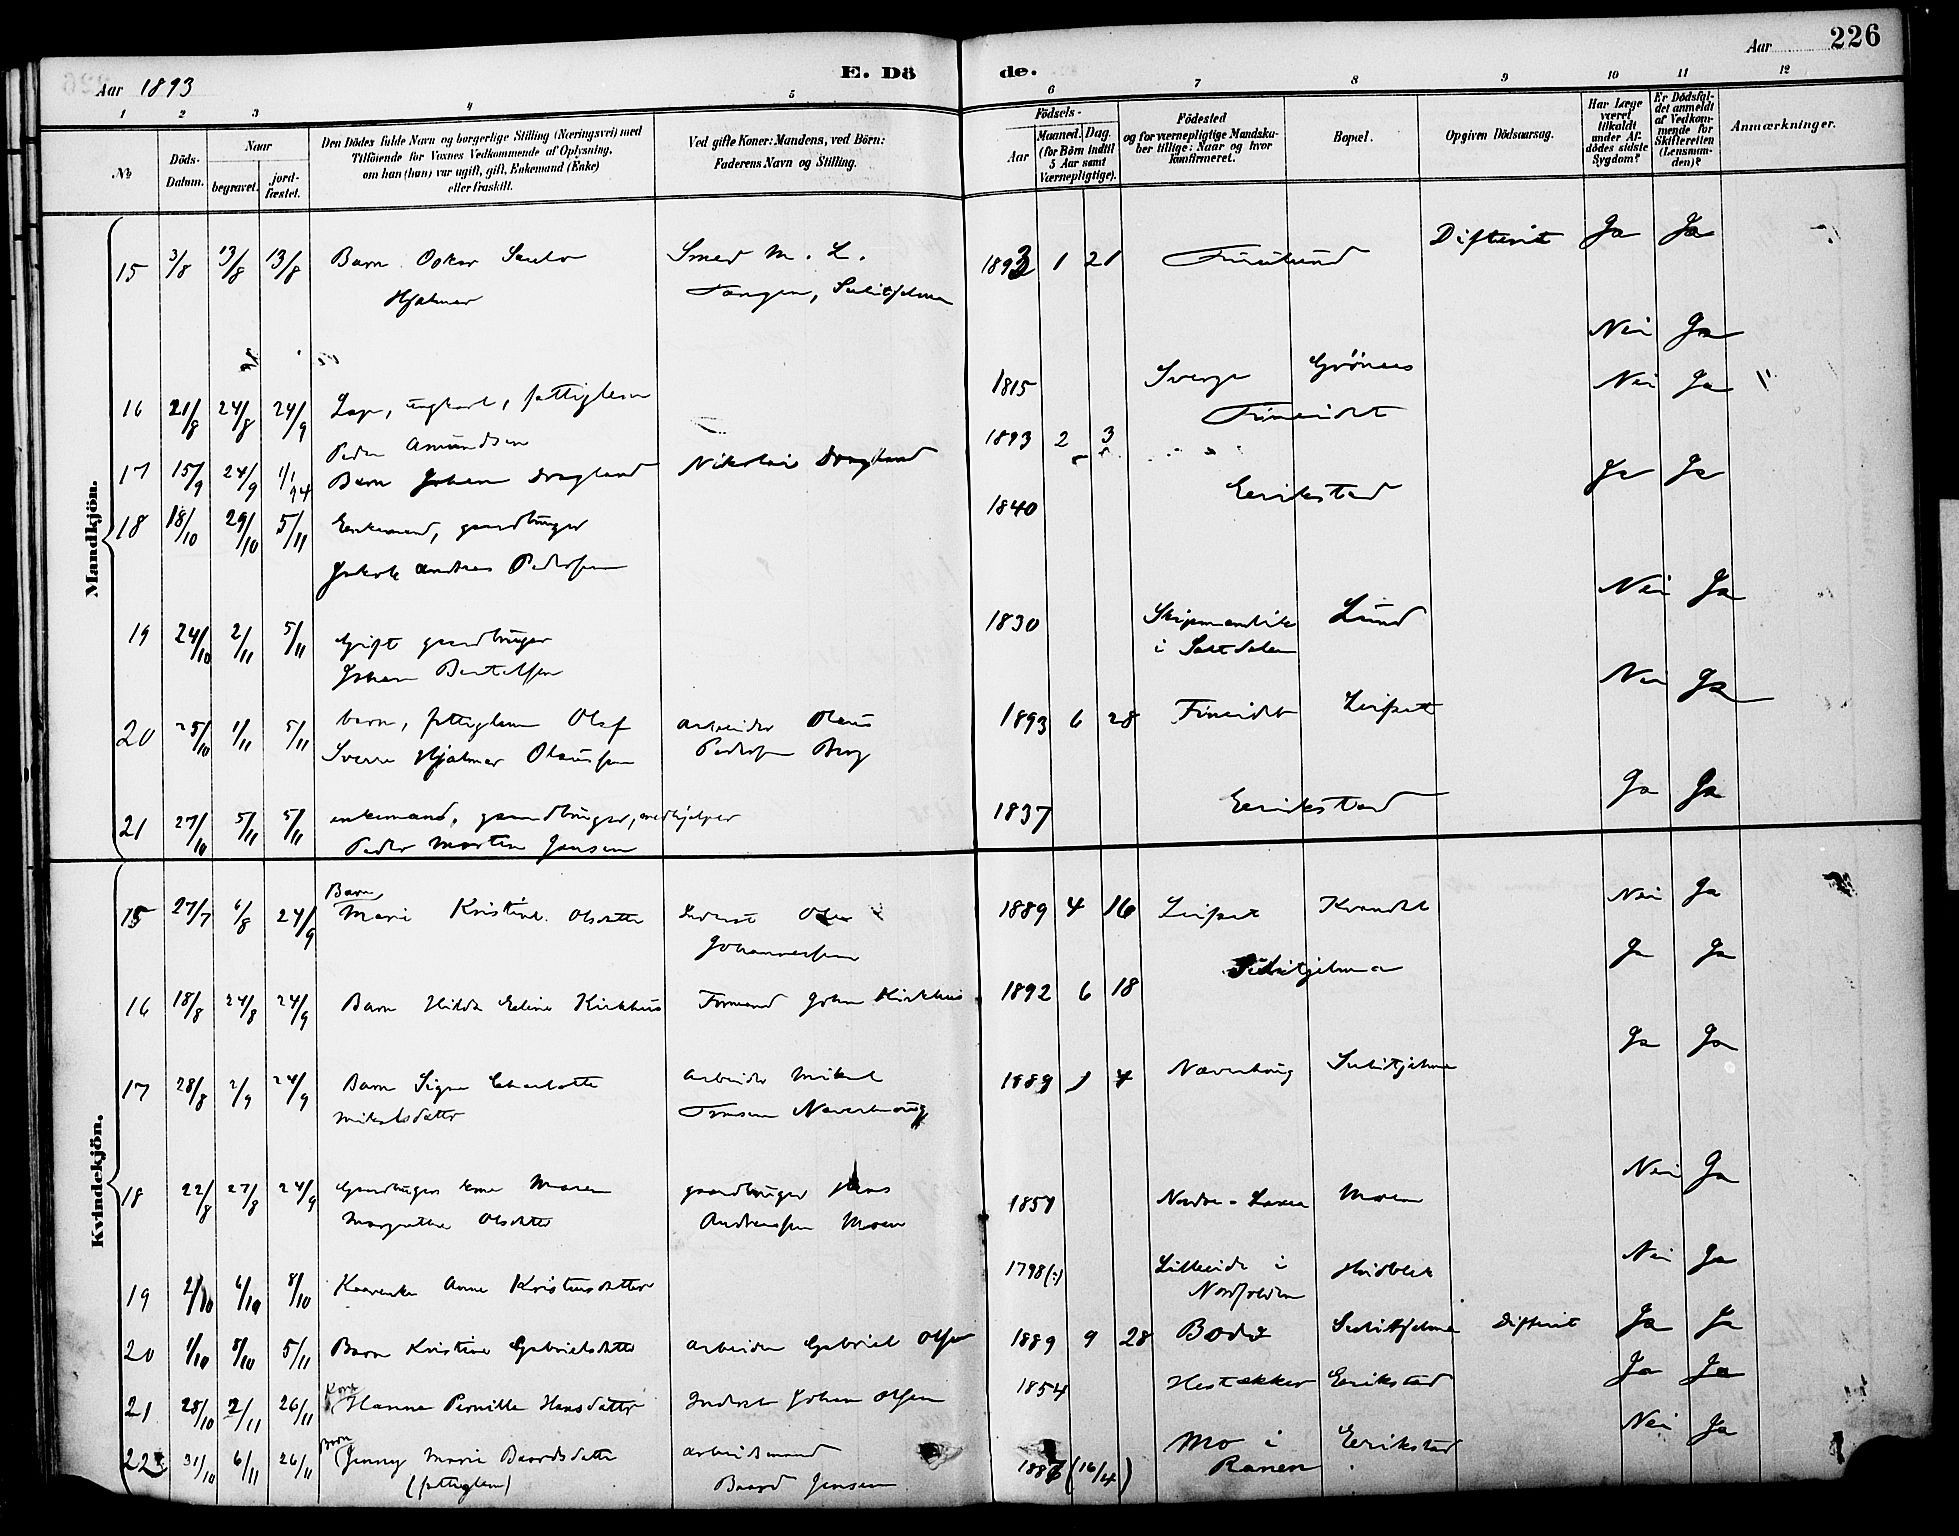 Aar 1893
E. Dö
de.
Aar
226
1 2 3 4 5 6 7 8 9 10 11 12
No
Döds-Datum.
Naar
begravet.
jord-fæstet.
Den Dödes fulde Navn og borgerlige Stilling (Næringsvei) med
Tilföiende for Voxnes Vedkommende af Oplysning,
om han (hun) var ugift, gift, Enkemand (Enke)
eller fraskilt.
Ved gifte Koner: Mandens, ved Börn:
Faderens Navn og Stilling.
Födsels-
Aar
Maaned. Dag.
(for Börn indtil
5 Aar samt
Værnepligtige).
Födested
og for værnepligtige Mandska-
ber tillige: Naar og hvor
konfirmeret.
Bopæl.
Opgiven Dödsaarsag.
Har Læge
været
tilkaldt
under Af-
dödes sidste
Sygdom?
Er Dödsfal-
det anmeldt
af Vedkom-
mende for
Skifteretten
(Lensman-
den)?
Anmærkninger.
Mandkjön.
15 3/8 13/8 13/8 Barn Oskar
Hjalmar
Smed M. L.
Tangen, Sulitjelma
1893 1 21 Difterit Ja Ja
Nei Ja
16 21/8 24/8 24/9 Lap, ungkarl, fattiglem
Peder Amundsen
1815 Sverge Grönnes Nei Ja
17 15/9 24/9 1/1 94 Barn Johan Dragland
Nikolai Dragland
1893 2 3 Fineidet
18 18/10 29/10 5/11 Enkemand, gaardbruger
Jakob Andreas Pedersen
1840 Eerikstad Ja Ja
19 24/10 2/11 5/11 Gift gaardbruger
Johan Bertelsen
1830 Skipmandvik
i Saltdalen
Lund Nei Ja
20 25/10 1/11 5/11 barn, fattiglem Olaf
Sverre Hjalmar Olaussen
arbeider Olaus
Pedersen Berg
1893 6 28 Fineidet Leifset Nei Ja
21 27/10 5/11 5/11 enkemand, gaardbruger, medhjelper
Peder Morten Jensen
1837 Eerikstad Ja Ja
Kvindekjön.
15 27/7 6/8 24/9 Barn
Marie Kristine Olsdatter
Inderst Ole
Johannessen
1889 4 16 Leifset Kvandal Nei Ja
16 18/8 24/8 24/9 Barn Hilda Eline Kirkhus
Formand Johan Kirkhus
1892 6 18 Sulitjelma Ja Ja
17 28/8 2/9 24/9 Barn Signe Charlotte
Mikalsdatter
Arbeider Mikal
Tonsen Neverhaug
1889 1 4 Næverhaug Sulitjelma Ja Ja
18 22/8 27/8 24/9 Gaardbrugers kone Maren
Margrethe Olsdatter
gaardbruger Hans
Andreassen Moen
1857 Nordre-Ranen Moen Nei Ja
19 2/10 6/10 8/10 Kaarenke Anne Kristensdatter
1798 (?) Lilleeide i
Nordfolden
Hvidblik Nei Ja
20 1/10 8/10 5/11 Barn Kristine Gabrielsdatter
Arbeider Gabriel Olsen
1889 9 28 Bodø Sulitjelma Difterit Ja Ja
21 28/10 2/11 26/11 Kone
Hanna Pernille Hansdatter
Inderst Johan Olsen
1854 Hestakker Eerikstad Ja Ja
22 31/10 6/11 26/11 Barn
Jenny Marie Baardsdatter
(fattiglem)
arbeidsmand
Baard Jensen
1886 (16/4) Mo i
Ranen
Eerikstad Nei Ja